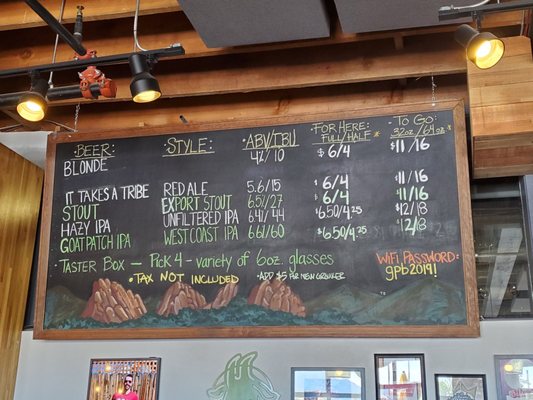 BEER: STYLE: ABV/IBU FOR HERE: FULL/HALF TO GO: 32oz / 64oz
BLONDE 4%/10 $6/4 $11/16
IT TAKES A TRIBE RED ALE 5.6/15 $6/4 $11/16
STOUT EXPORT STOUT $6/4 $11/16
HAZY IPA UNFILTERED IPA 6.4/44 $6.50/4.25 $12/18
GOAT PATCH IPA WEST COAST IPA 6.6/60 $6.50/4.25 $12/18
- TASTER BOX - PICK 4 - VARIETY OF 6oz. GLASSES
* TAX NOT INCLUDED *
*ADD $5 FOR NEW GROWLER
WIFI PASSWORD:
gpb2019!